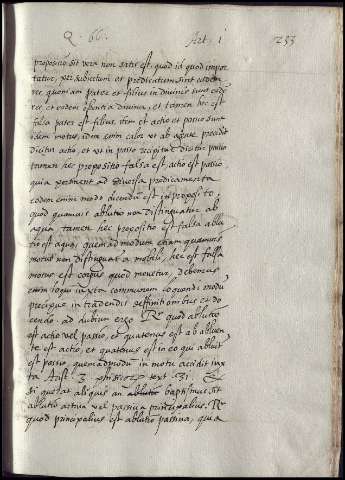 Q. 66. Art. 1 233
propositio sit vera non satis est, quod id quod impor
tatur, per subiectum et predicatum sint eadem
res, quoniam pater et filius in divinis sunt eadem
res, et eadem essentia divina, et tamen hec est
falsa pater est filius, item et actio et passio sunt
idem motus, idem enim calor ut ab agente procedit
dicitur actio, et ut in passo recipitur dicitur passio
tamen hec propositio falsa est, actio est passio
quia pertinent ad diversa predicamenta
eodem enim modo dicendum est in proposito,
quod quamvis ablutio non distinguatur ab
aqua tamen hec propositio est falsa ablu
tio est aqua, quemadmodum etiam quamvis
motus non distinguatur a mobili, hec est falsa
motus est corpus quod movetur, debemus
enim loqui iuxta communem loquendi modum
precipue in tradendis deffinitionibus et do
cendo. ad dubium ergo Rr quod ablutio
est actio vel passio, et quatenus est ab abluen
te est actio, et quatenus est in eo qui ablui
est passio, quemadmodum in motu accidit iux
ta Arist. 3 phisicorum text. 31. Et
si querat aliquis an ablutio baptismus sit
ablutio activa vel passiva principalius. Rr
quod principalius est ablutio passiva, quia